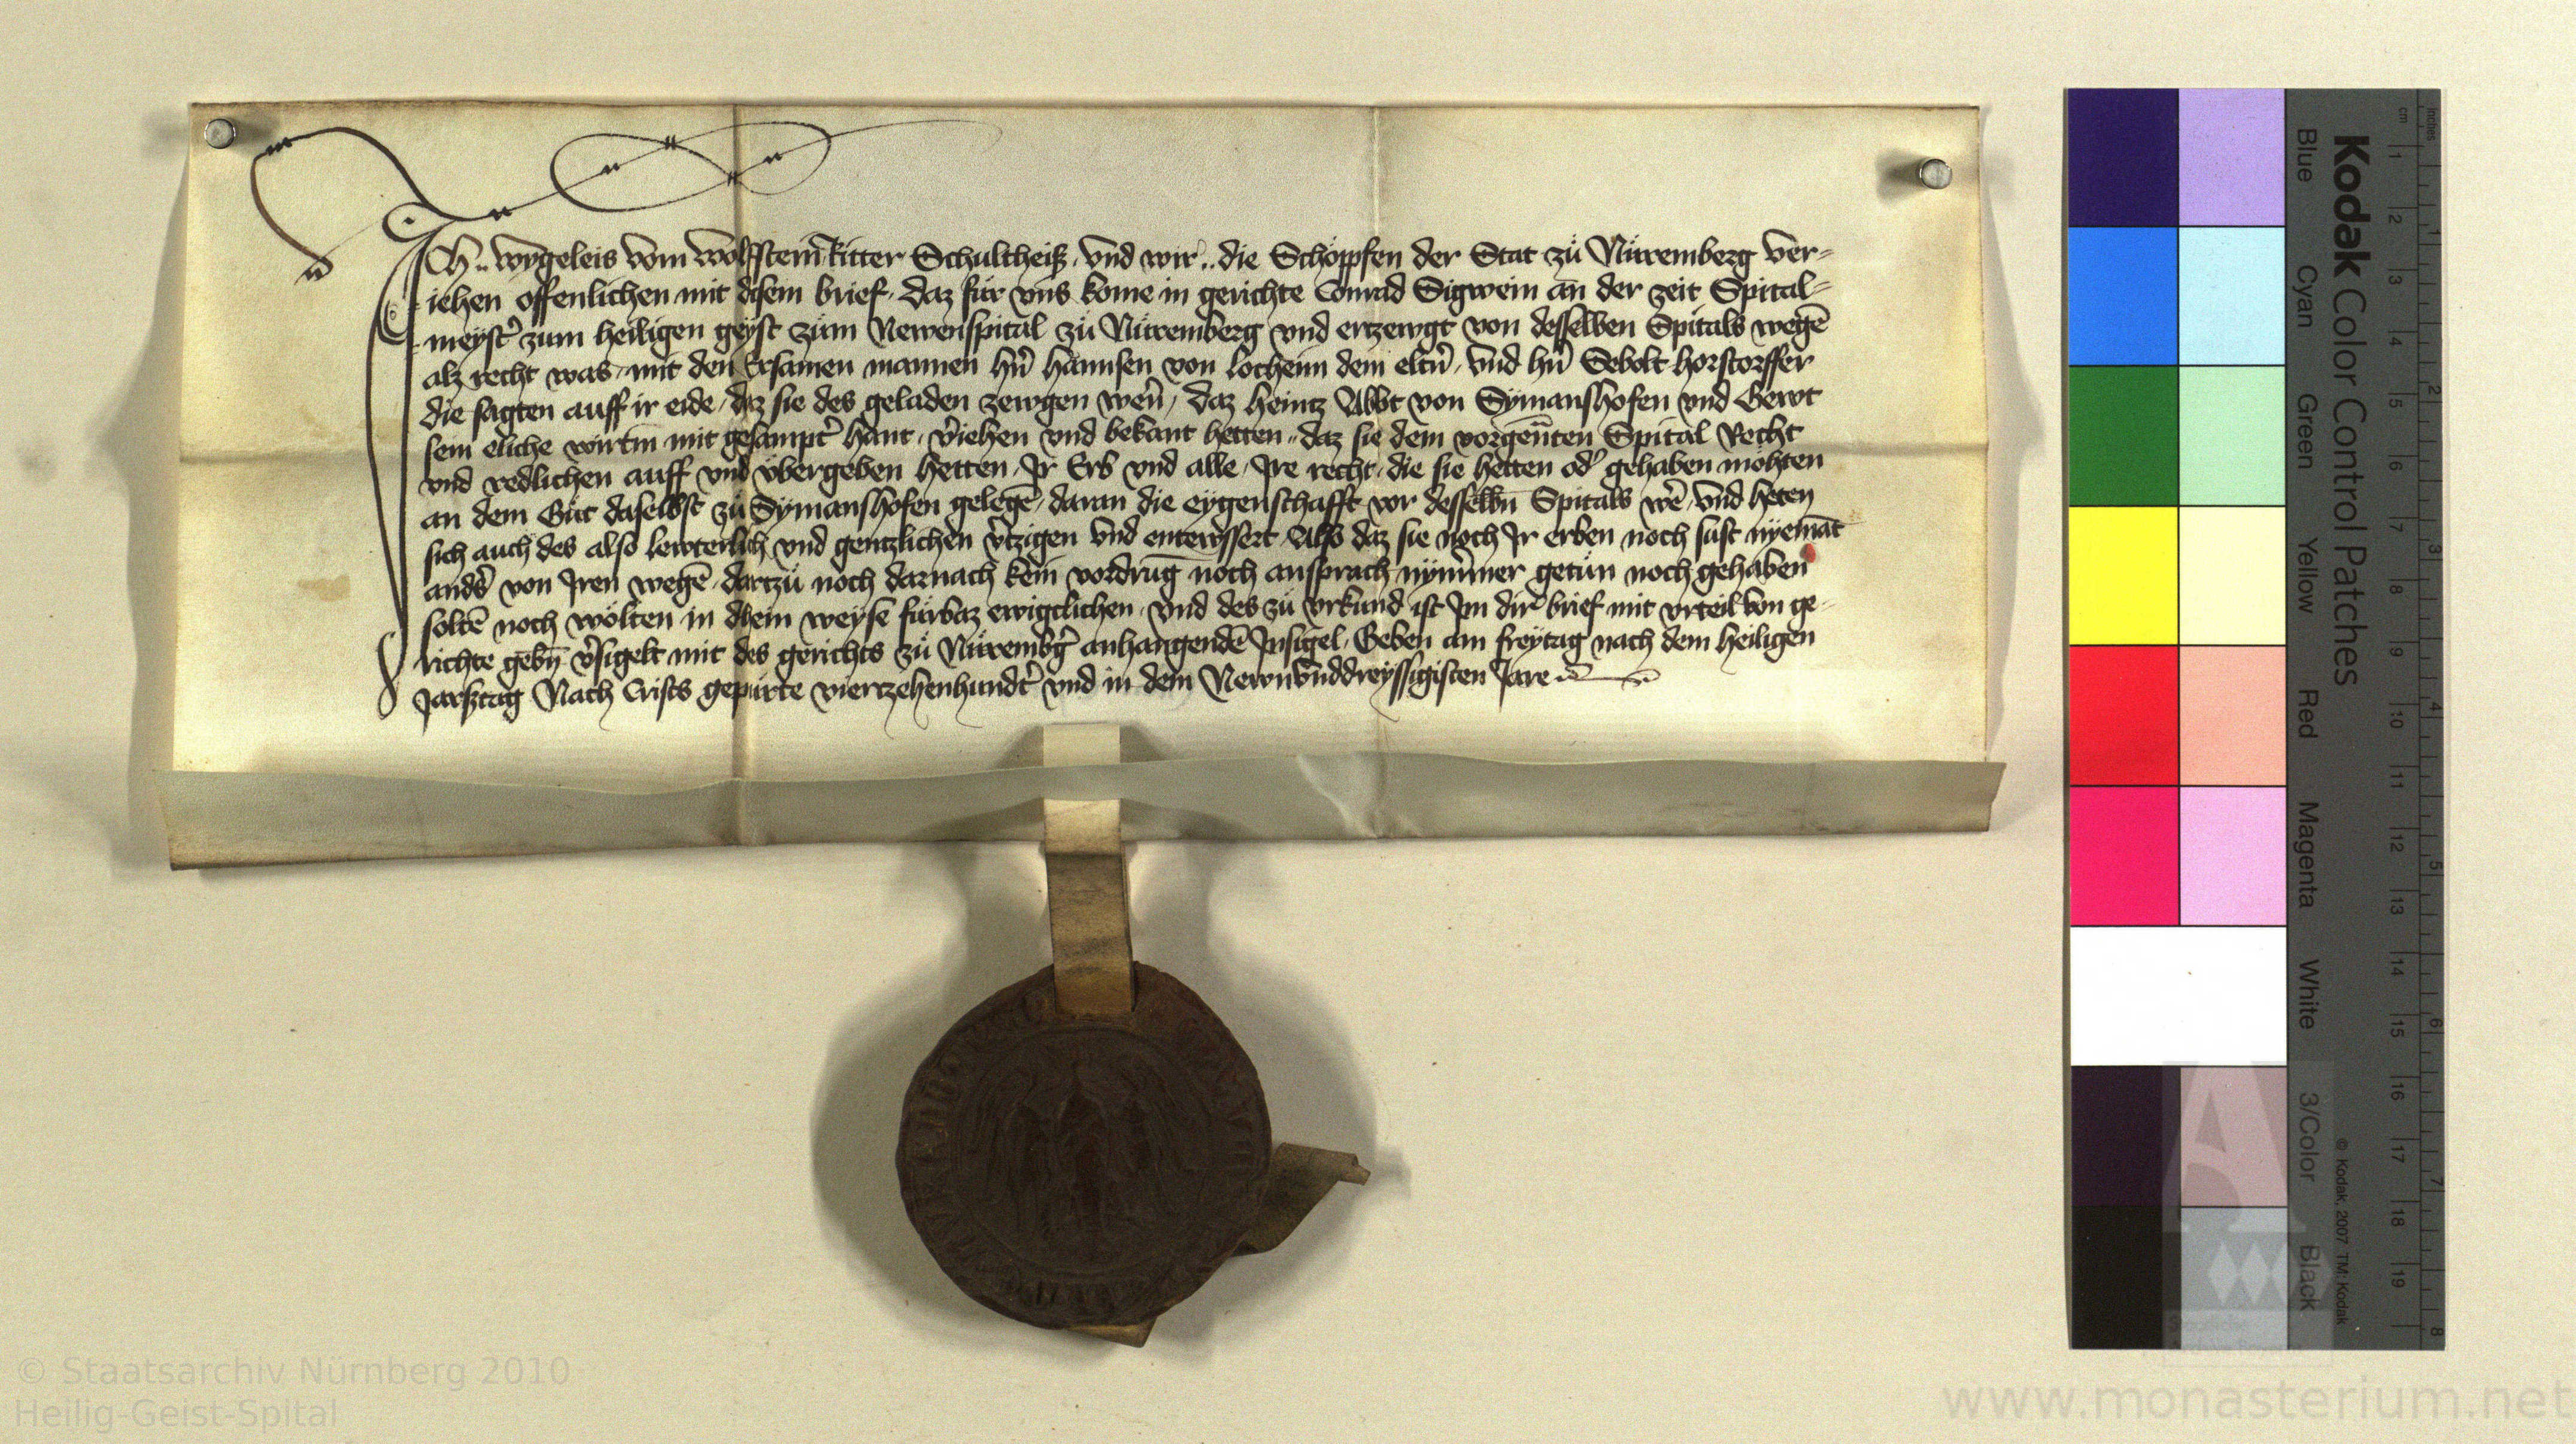 ICh .. wygeleis vom wolfstein Ritter Schultheiß, vnd wir .. die Schöppfen der Stat zů Nůremberg ver=
iehen offenlichen mit disem brief, daz für vns kome in gerichte Conrad Sigwein an der zeit Spital=
meyst' zum heiligen geyst zům Newenspital zů Nůremberg vnd ertzewgt von desselben Spitals wegē
alz recht was, mit den Ersamen mannen hn̄ hannsen von locheim dem eltn̄, vnd hn̄ Sebolt horstorffer
die sagten auff ir eide, daz sie des geladen zewgen wern̄, daz heintz Abbt von Symanshofen vnd Gewt
sein eliche wirtin mit gesampt' hant, v'iehen vnd bekant hetten, daz sie dem vorgen̄ten Spital Recht
vnd redlichen auff vnd vbergeben hetten, Ir Erb vnd alle, Ire recht, die sie hetten od' gehaben möhten
an dem Gůt daselbst zů Symanshofen gelegē, daran die eygenschafft vor desselbn̄ Spitals wē, vnd heten
sich auch des also lewterlich vnd gentzlichen v'tzigen vnd entewssert, Also daz sie noch Ir erben noch sust nyemāt
and's von Iren wegē, dartzů noch darnach kein vordrūg noch ansprach nym̄mer getůn noch gehaben
soltē noch wölten in dhein weyse fůrbaz ewigclichen, vnd des zů vrkund ist Im dir' brief mit vrteil von ge=
richte gebn̄ v'sigelt mit des gerichts zů Nůremb'g anhangendē Insigel, Geben am freytag nach dem heiligen
Jarsztag Nach Crists gepůrte viertzehenhundt' vnd in dem Newnvnddreyssigisten Jare
Kodak Color Control Patches
Blue Cyan Green Yellow Red Magenta White 3/Color Black
© Kodak, 2007 TM: Kodak
cm 1 2 3 4 5 6 7 8 9 10 11 12 13 14 15 16 17 18 19
Inches 1 2 3 4 5 6 7 8
© Staatsarchiv Nürnberg 2010
Heilig-Geist-Spital
www.monasterium.net